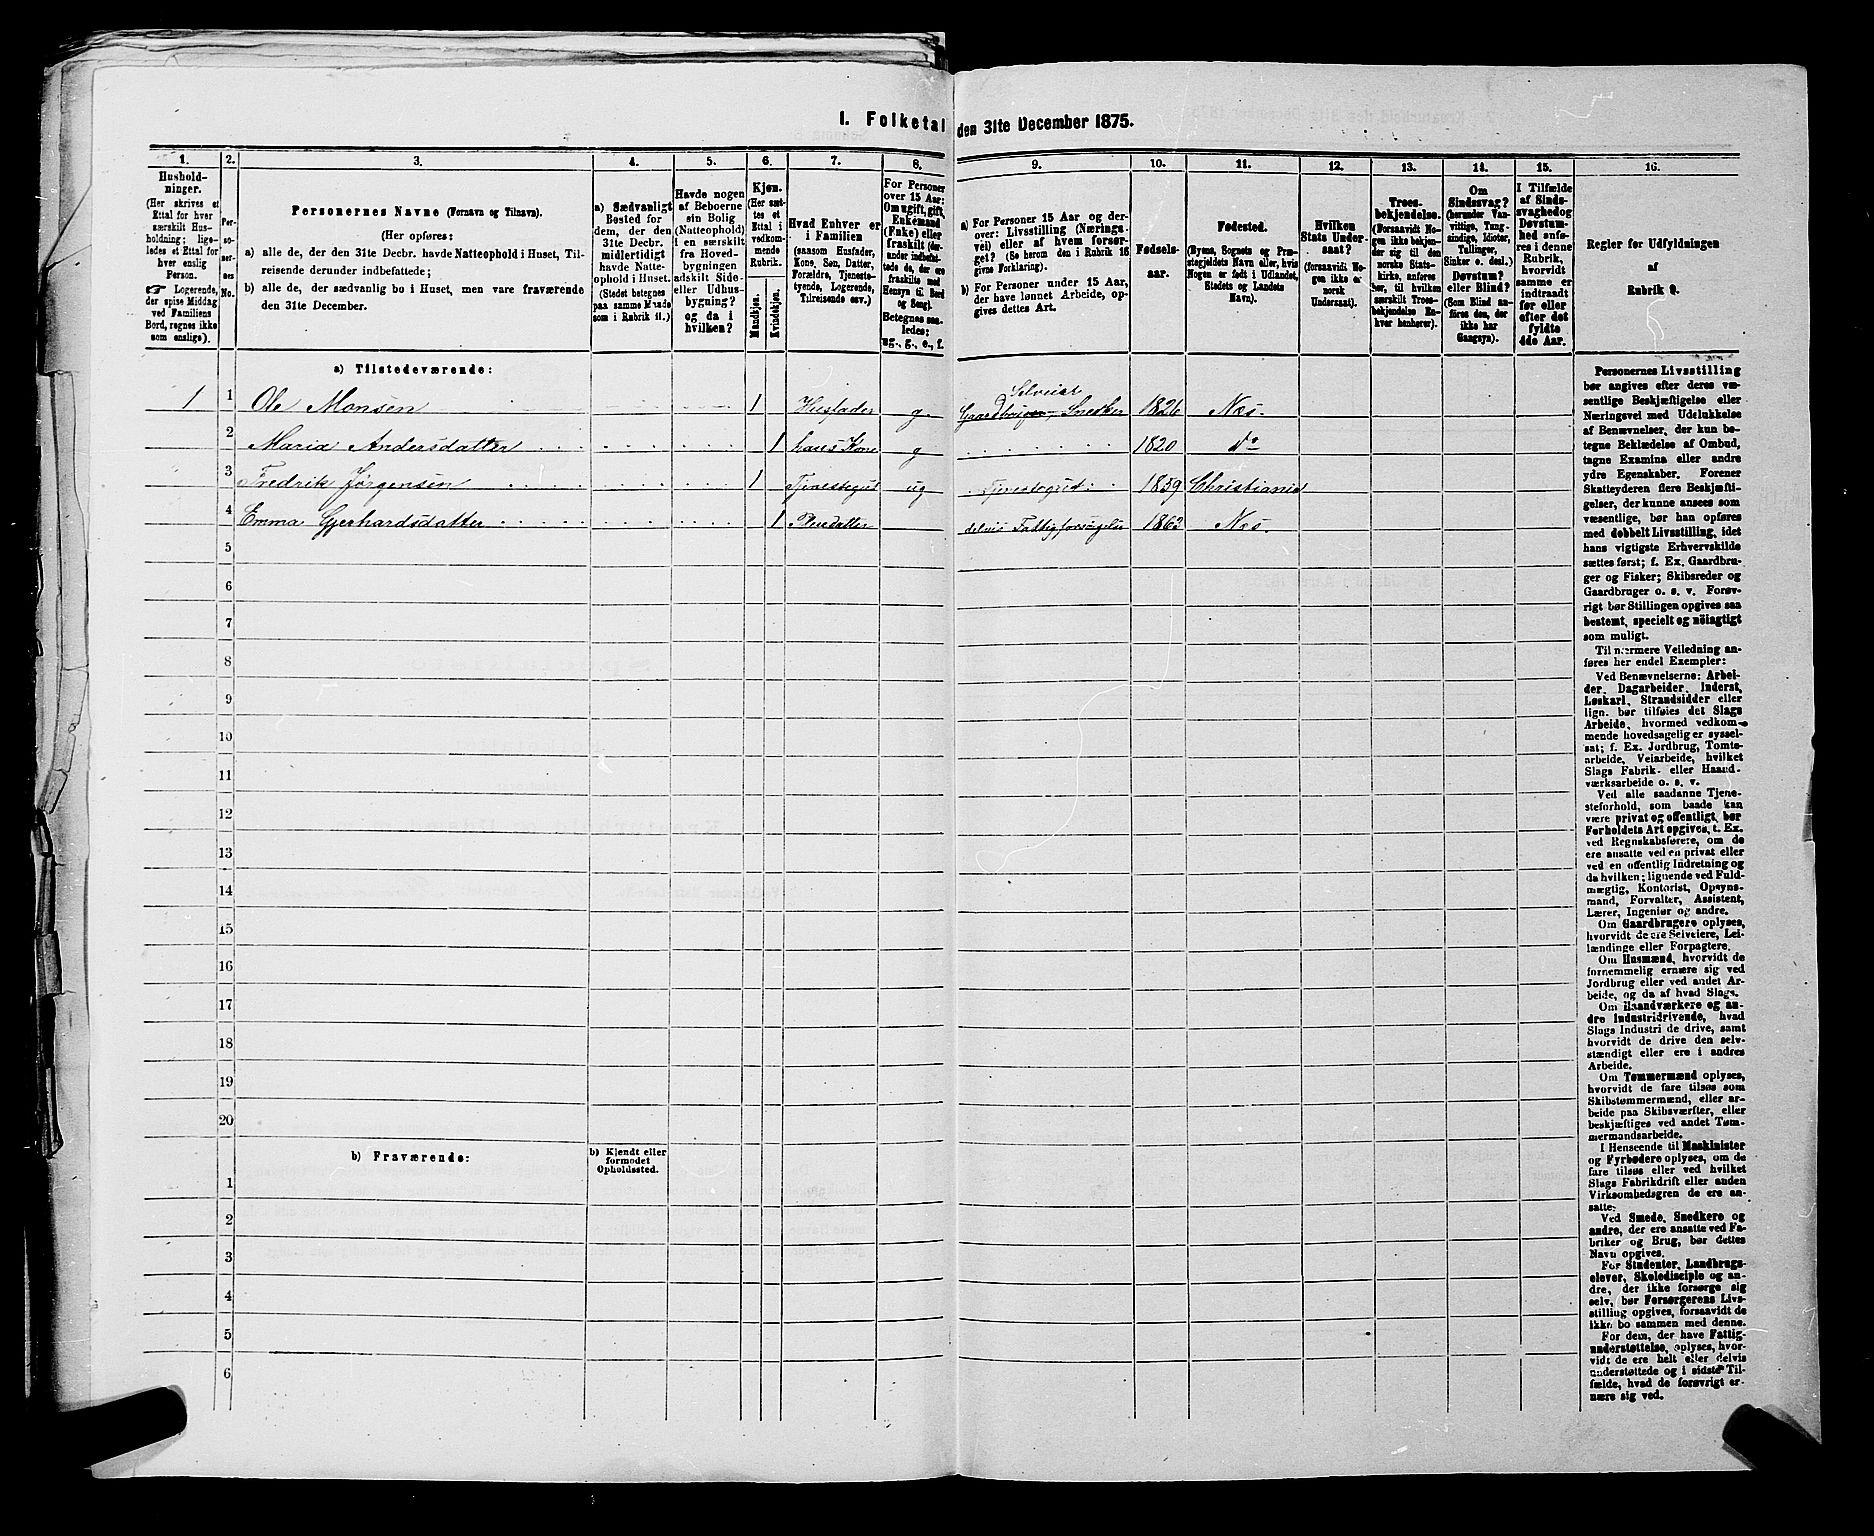 I. Folketal den 31te December 1875.
1. 2. 3. 4. 5. 6. 7. 8. 9. 10. 11. 12. 13. 14. 15. 16.
Hushold-
ninger.
(Her skrives et
Ettal for hver
særskilt Hus-
holdning; lige-
ledes et Ettal for
hver enslig
Person.
☞ Logerende,
der spise Middag
ved Familiens
Bord, regnes ikke
som enslige).
Per-
so-
ner-
nes
No.
Personernes Navne (Fornavn og Tilnavn).
(Her opføres:
a) alle de, der den 31te Decbr. havde Natteophold i Huset, Til-
reisende derunder indbefattede;
b) alle de, der sædvanlig bo i Huset, men vare fraværende
den 31te December.
a) Sædvanligt
Bosted for
dem, der den
31te Decbr.
midlertidigt
havde Natte-
ophold i Huset.
(Stedet betegnes
paa samme Maade
som i Rubrik 11.)
Havde nogen
af Beboerne
sin Bolig
(Natteophold)
i en særskilt
fra Hoved-
bygningen
adskilt Side-
eller Udhus-
bygning?
og da i
hvilken?
Kjøn.
(Her sæt-
tes et
Ettal i
vedkom-
mende
Rubrik.
Mandkjøn.
Kvindekjøn.
Hvad Enhver er
i Familien
(saasom Husfader,
Kone, Søn, Datter,
Forældre, Tjeneste-
tyende, Logerende,
Tilreisende osv.)
For Personer
over 15 Aar:
Om ugift, gift,
Enkemand
(Enke) eller
fraskilt (der-
under indbefat-
tede de, der ere
fraskilte med
Hensyn til Bord
og Seng).
Betegnes saa-
ledes:
ug., g., e., f.
a) For Personer 15 Aar og der-
over: Livsstilling (Nærings-
vei) eller af hvem forsør-
get? (Se herom den i Rubrik 16
givne Forklaring).
b) For Personer under 15 Aar,
der have lønnet Arbeide, op-
gives dettes Art.
Fødsels-
aar.
Fødested.
(Byens, Sognets og Præ-
stegjeldets Navn eller, hvis
Nogen er født i Udlandet,
Stedets og Landets
Navn).
Hvilken
Stats Under-
saat?
(forsaavidt No-
gen ikke er
norsk
Undersaat).
Troes-
bekjendelse.
(Forsaavidt No-
gen ikke bekjen-
der sig til den
norske Stats-
kirke, anføres
her, til hvilken
særskilt Troes-
bekjendelse En-
hver henhører).
Om
Sindssvag?
(herunder Van-
vittige, Tung-
sindige, Idioter,
Tullinger,
Sinker o. desl.)
Døvstum?
eller Blind?
(Som Blind an-
føres den, der
ikke har
Gangsyn).
I Tilfælde
af Sinds-
svaghed og
Døvstum-
hed anfø-
res i denne
Rubrik,
hvorvidt
samme er
indtraadt
før eller
efter det
fyldte
4de Aar.
Regler for Udfyldningen
af
Rubrik 9.
a) Tilstedeværende:
1 1 Ole Monsen 1 Husfader g. Selveier Gaardbruger, Snedker 1826 Næs.
2 Maria Andersdatter 1 hans Kone g 1820 do
3 Fredrik Jørgensen 1 Tjenestegut ug Tjenestegut. 1859 Christiania
4 Emma Gerhardsdatter 1 Pleiedatter delvis Fattigforsørgelse 1862 Næs.
5
6
7
8
9
10
11
12
13
14
15
16
17
18
19
20
b) Fraværende:
b) Kjendt eller
formodet
Opholdssted.
1
2
3
4
5
6
Personernes Livsstilling
bør angives efter deres væ-
sentlige Beskjæftigelse eller
Næringsvei med Udelukkelse
af Benævnelser, der kun be-
tegne Beklædelse af Ombud,
tagne Examina eller andre
ydre Egenskaber. Forener
Skatteyderen flere Beskjæfti-
gelser, der kunne ansees som
væsentlige, bør han opføres
med dobbelt Livsstilling, idet
hans vigtigste Erhvervskilde
sættes først; f. Ex. Gaardbru-
ger og Fisker; Skibsreder og
Gaardbruger o. s. v. Forøv-
rigt bør Stillingen opgives saa
bestemt, specielt og nøiagtigt
som muligt.
Til nærmere Veiledning an-
føres her endel Exempler:
Ved Benævnelserne: Arbei-
der, Dagarbeider, Inderst,
Løskarl, Strandsidder eller
lign. bør tilføies det Slags
Arbeide, hvormed vedkom-
mende hovedsagelig er syssel-
sat; f. Ex. Jordbrug, Tomte-
arbeide, Veiarbeide, hvilket
Slags Fabrik- eller Haand-
værksarbeide o. s. v.
Ved alle saadanne Tjene-
steforhold, som baade kan
være privat og offentligt, bør
Forholdets Art opgives, t. Ex.
ved Regnskabsførere, om de
ere ansatte ved en privat eller
ved en offentlig Indretning og
da hvilken; lignende ved Fuld-
mægtig, Kontorist, Opsyns-
mand, Forvalter, Assistent,
Lærer, Ingeniør og andre.
Om Gaardbrugere oplyses,
hvorvidt de ere Selveiere, Lei-
lændinge eller Forpagtere.
Om Husmænd, hvorvidt de
fornemmelig ernære sig ved
Jordbrug eller ved andet Ar-
beide, og da af hvad Slags.
Om Haandværkere og an-
dre Industridrivende, hvad
Slags Industri de drive, samt
hvorvidt de drive den selv-
stændigt eller ere i andres
Arbeide.
Om Tømmermænd oplyses,
hvorvidt de fare tilsøs som
Skibstømmermænd, eller ar-
beide paa Skibsværfter, eller
beskjæftiges ved andet Tøm-
mermandsarbeide.
I Henseende til Maskinister
og Fyrbødere oplyses, om de
fare tilsøs eller ved hvilket
Slags Fabrikdrift eller anden
Virksomhedsgren de ere an-
satte.
Ved Smede, Snedkere og
andre, der ere ansatte ved Fa-
briker og Brug, bør dettes
Navn opgives.
For Studenter, Landbrugs-
elever, Skoledisciple og an-
dre, der ikke forsørge sig
selv, bør Forsørgerens Livs-
stilling opgives, forsaavidt de
ikke bo sammen med denne.
For dem, der have Fattig-
understøttelse, oplyses, hvor-
vidt de ere helt eller delvis
understøttede og i sidste Til-
fælde, hvad de forøvrigt er-
nære sig ved.